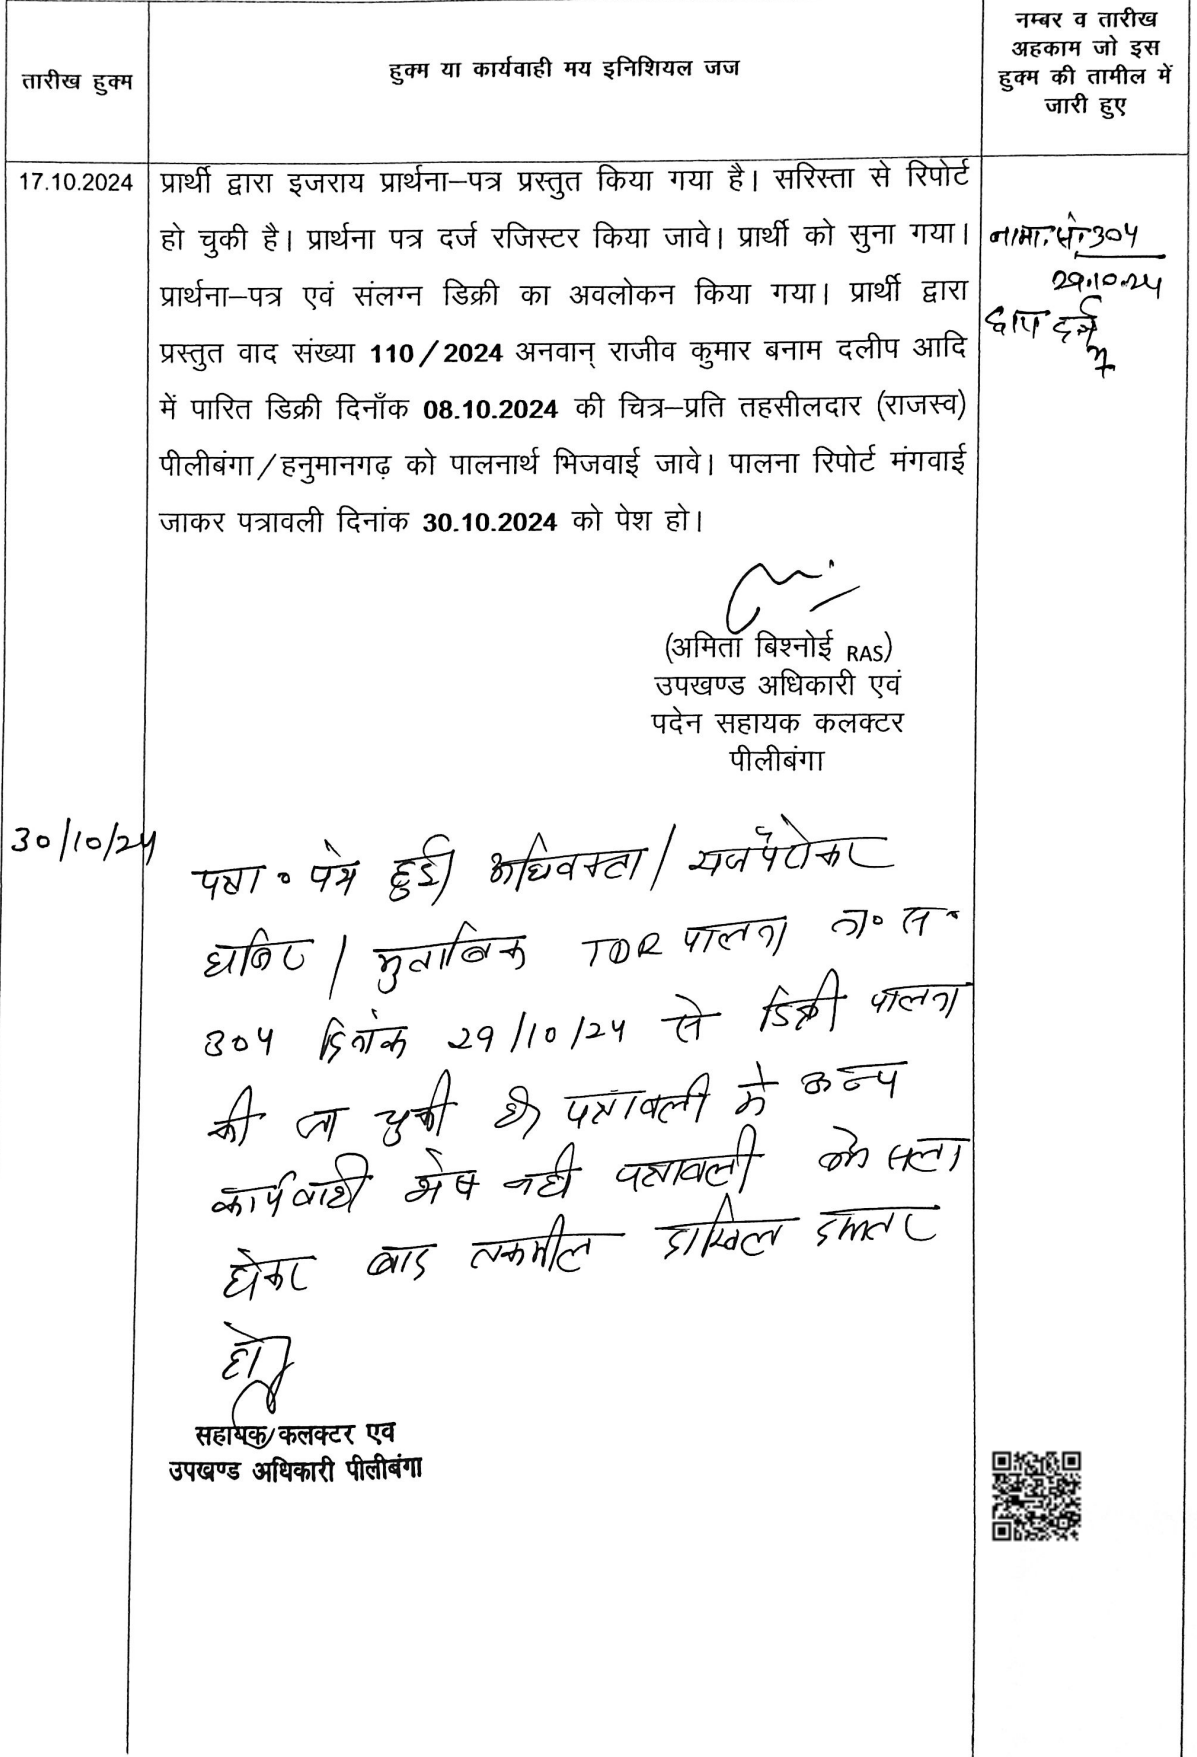 तारीख हुक्म
हुक्म या कार्यवाही मय इनिशियल जज
नम्बर व तारीख
अहकाम जो इस
हुक्म की तामील में
जारी हुए
17.10.2024
प्रार्थी द्वारा इजराय प्रार्थना–पत्र प्रस्तुत किया गया है। सरिस्ता से रिपोर्ट
हो चुकी है। प्रार्थना पत्र दर्ज रजिस्टर किया जावे। प्रार्थी को सुना गया।
प्रार्थना–पत्र एवं संलग्न डिक्री का अवलोकन किया गया। प्रार्थी द्वारा
प्रस्तुत वाद संख्या 110/2024 अनवान् राजीव कुमार बनाम दलीप आदि
में पारित डिक्री दिनाँक 08.10.2024 की चित्र–प्रति तहसीलदार (राजस्व)
पीलीबंगा/हनुमानगढ़ को पालनार्थ भिजवाई जावे। पालना रिपोर्ट मंगवाई
जाकर पत्रावली दिनांक 30.10.2024 को पेश हो।
नामा. सं. 304
29.10.24
दर्ज
(अमिता बिश्नोई RAS)
उपखण्ड अधिकारी एवं
पदेन सहायक कलक्टर
पीलीबंगा
30/10/24
पत्रा॰ पेश हुई। अधिवक्ता/ राजपैरोकार
हाजिर/ मुताबिक TDR पालना
304 दिनांक 29/10/24 से डिक्री पालना
की जा चुकी है। पत्रावली में अन्य
कार्यवाही शेष नही पत्रावली फैसला
होकर बाद तकमील दाखिल दफ्तर
हो।
सहायक कलक्टर एवं
उपखण्ड अधिकारी पीलीबंगा